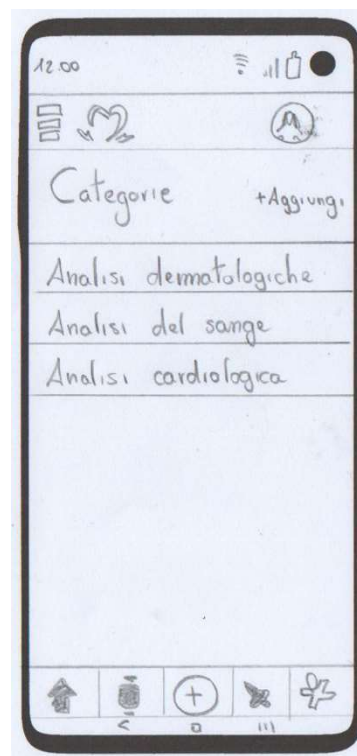 12.00
Categorie
+Aggiungi
Analisi dermatologiche
Analisi del sange
Analisi cardiologica